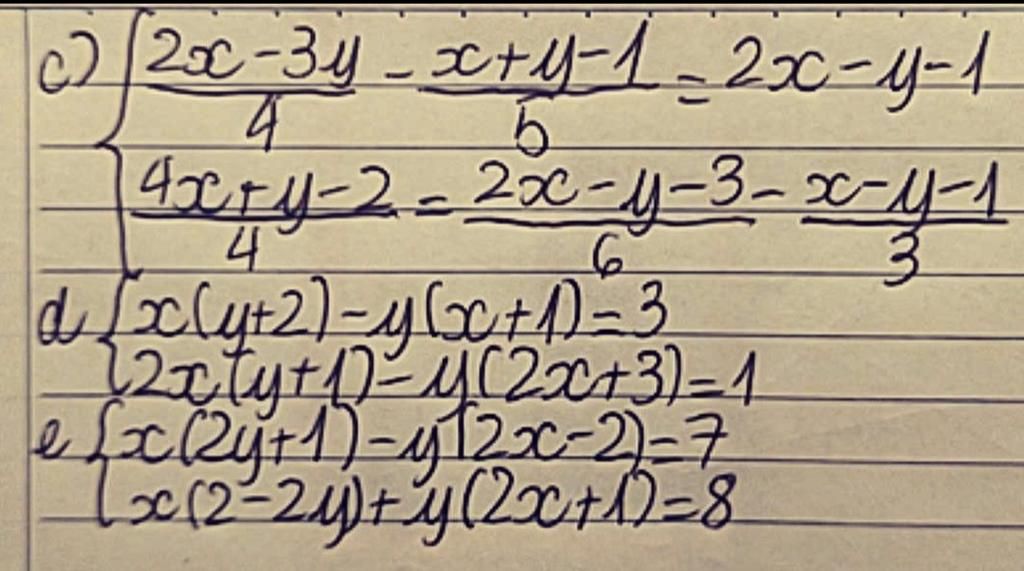 c) { \frac{2x-3y}{4} - \frac{x+y-1}{5} = 2x-y-1
\frac{4x+y-2}{4} = \frac{2x-y-3}{6} - \frac{x-y-1}{3}
d { x(y+2)-y(x+1)=3
2x(y+1)-y(2x+3)=1
e { x(2y+1)-y(2x-2)=7
x(2-2y)+y(2x+1)=8